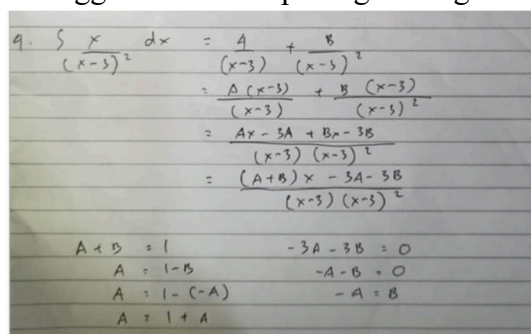 9. ∫ x/(x-3)² dx = A/(x-3) + B/(x-3)²
= A(x-3)/(x-3) + B(x-3)/(x-3)²
= Ax - 3A + Bx - 3B/(x-3)(x-3)²
= (A+B)x - 3A - 3B/(x-3)(x-3)²
A + B = 1 -3A - 3B = 0
A = 1 - B -A - B = 0
A = 1 - (-A) -A = B
A = 1 + A